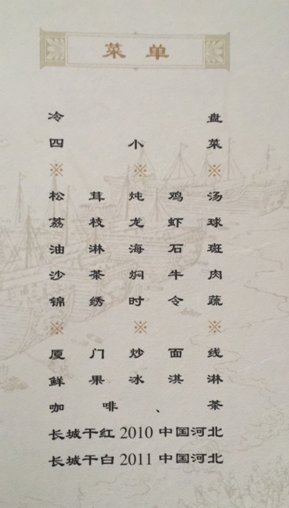 菜单
冷盘
四小菜
※ ※ ※
松茸炖鸡汤
荔枝龙虾球
油淋海石斑
沙茶焖牛肉
锦绣时令蔬
※ ※ ※
厦门炒面线
鲜果冰淇淋
咖啡、茶
长城干红2010中国河北
长城干白2011中国河北